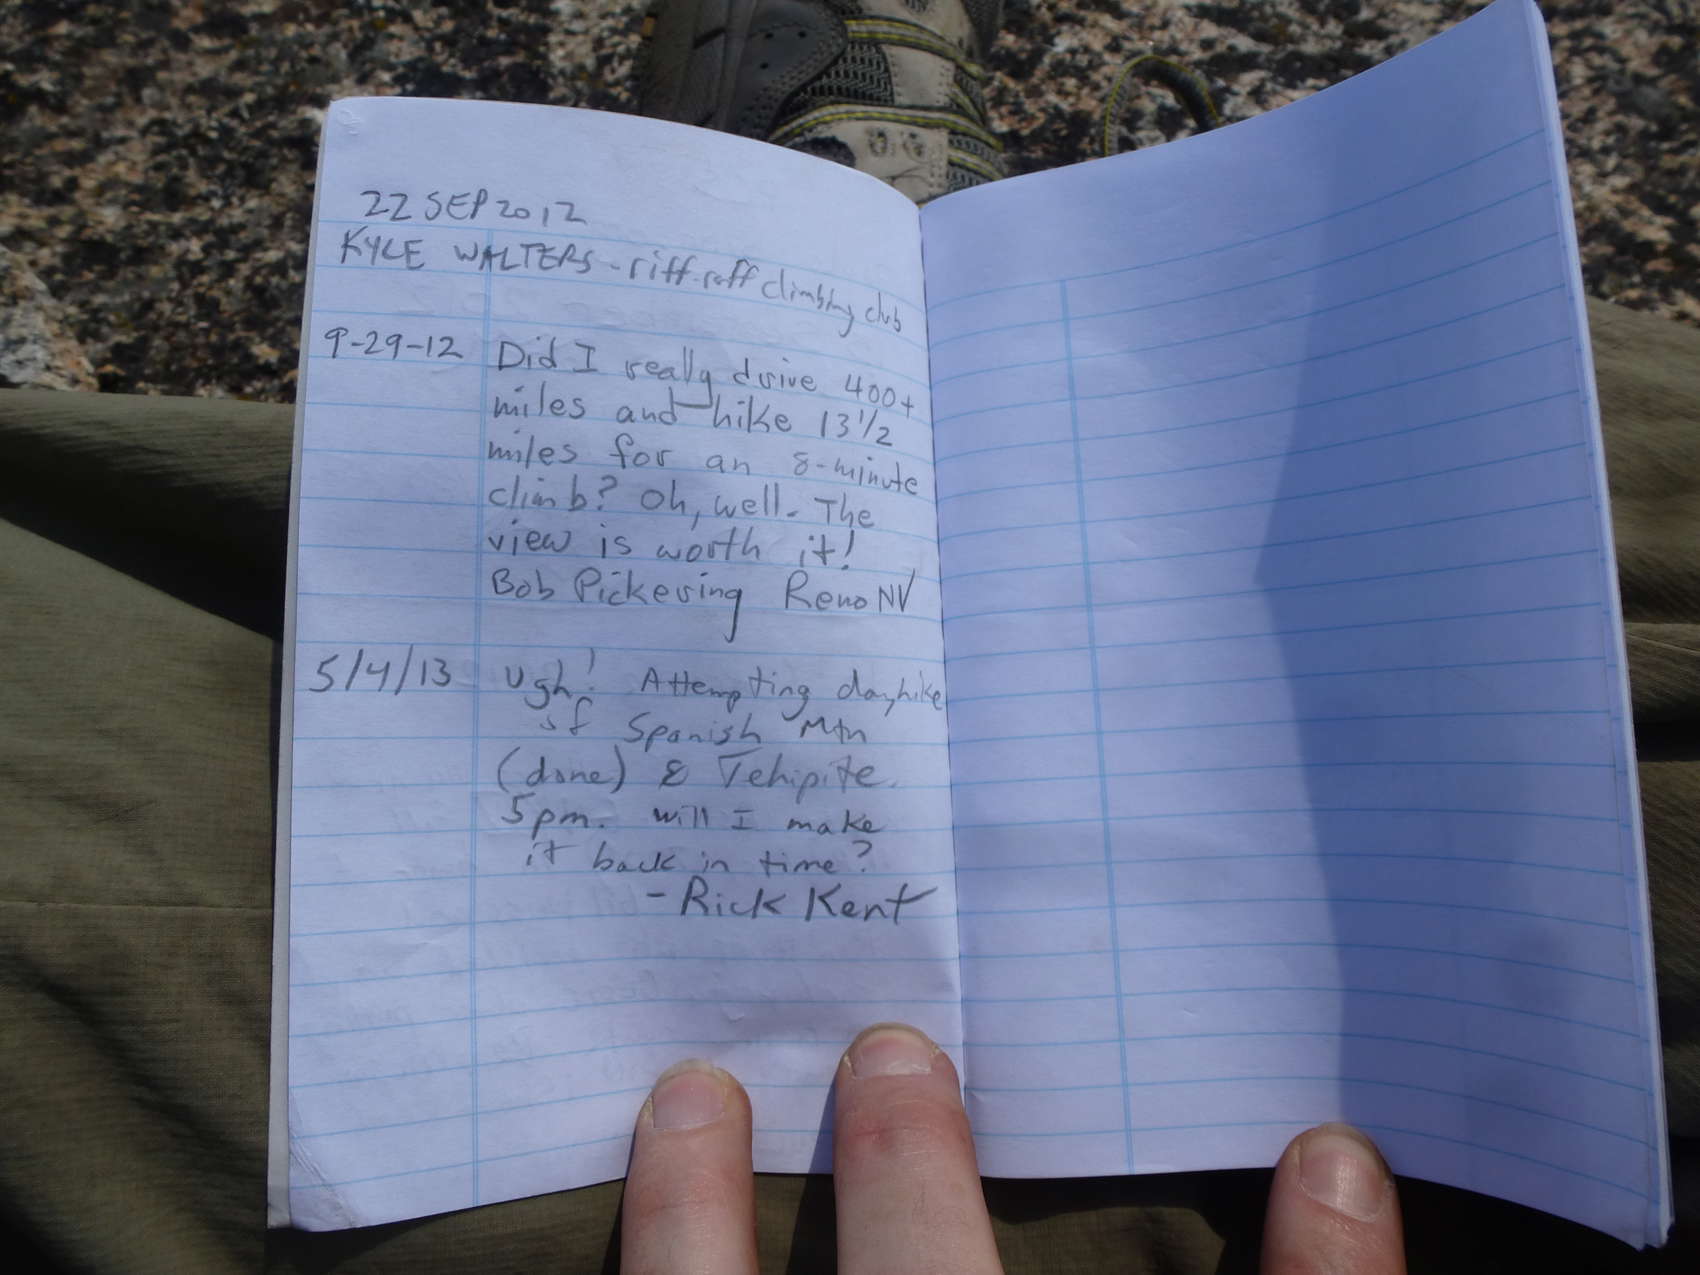 22 SEP 2012
KYLE WALTERS - riff-raff climbing club
9-29-12 Did I really drive 400+
miles and hike 13 1/2
miles for an 8-minute
climb? Oh, well. The
view is worth it!
Bob Pickering Reno NV
5/4/13 Ugh! Attempting dayhike
of Spanish Mtn
(done) & Tehipite.
5pm. will I make
it back in time?
- Rick Kent